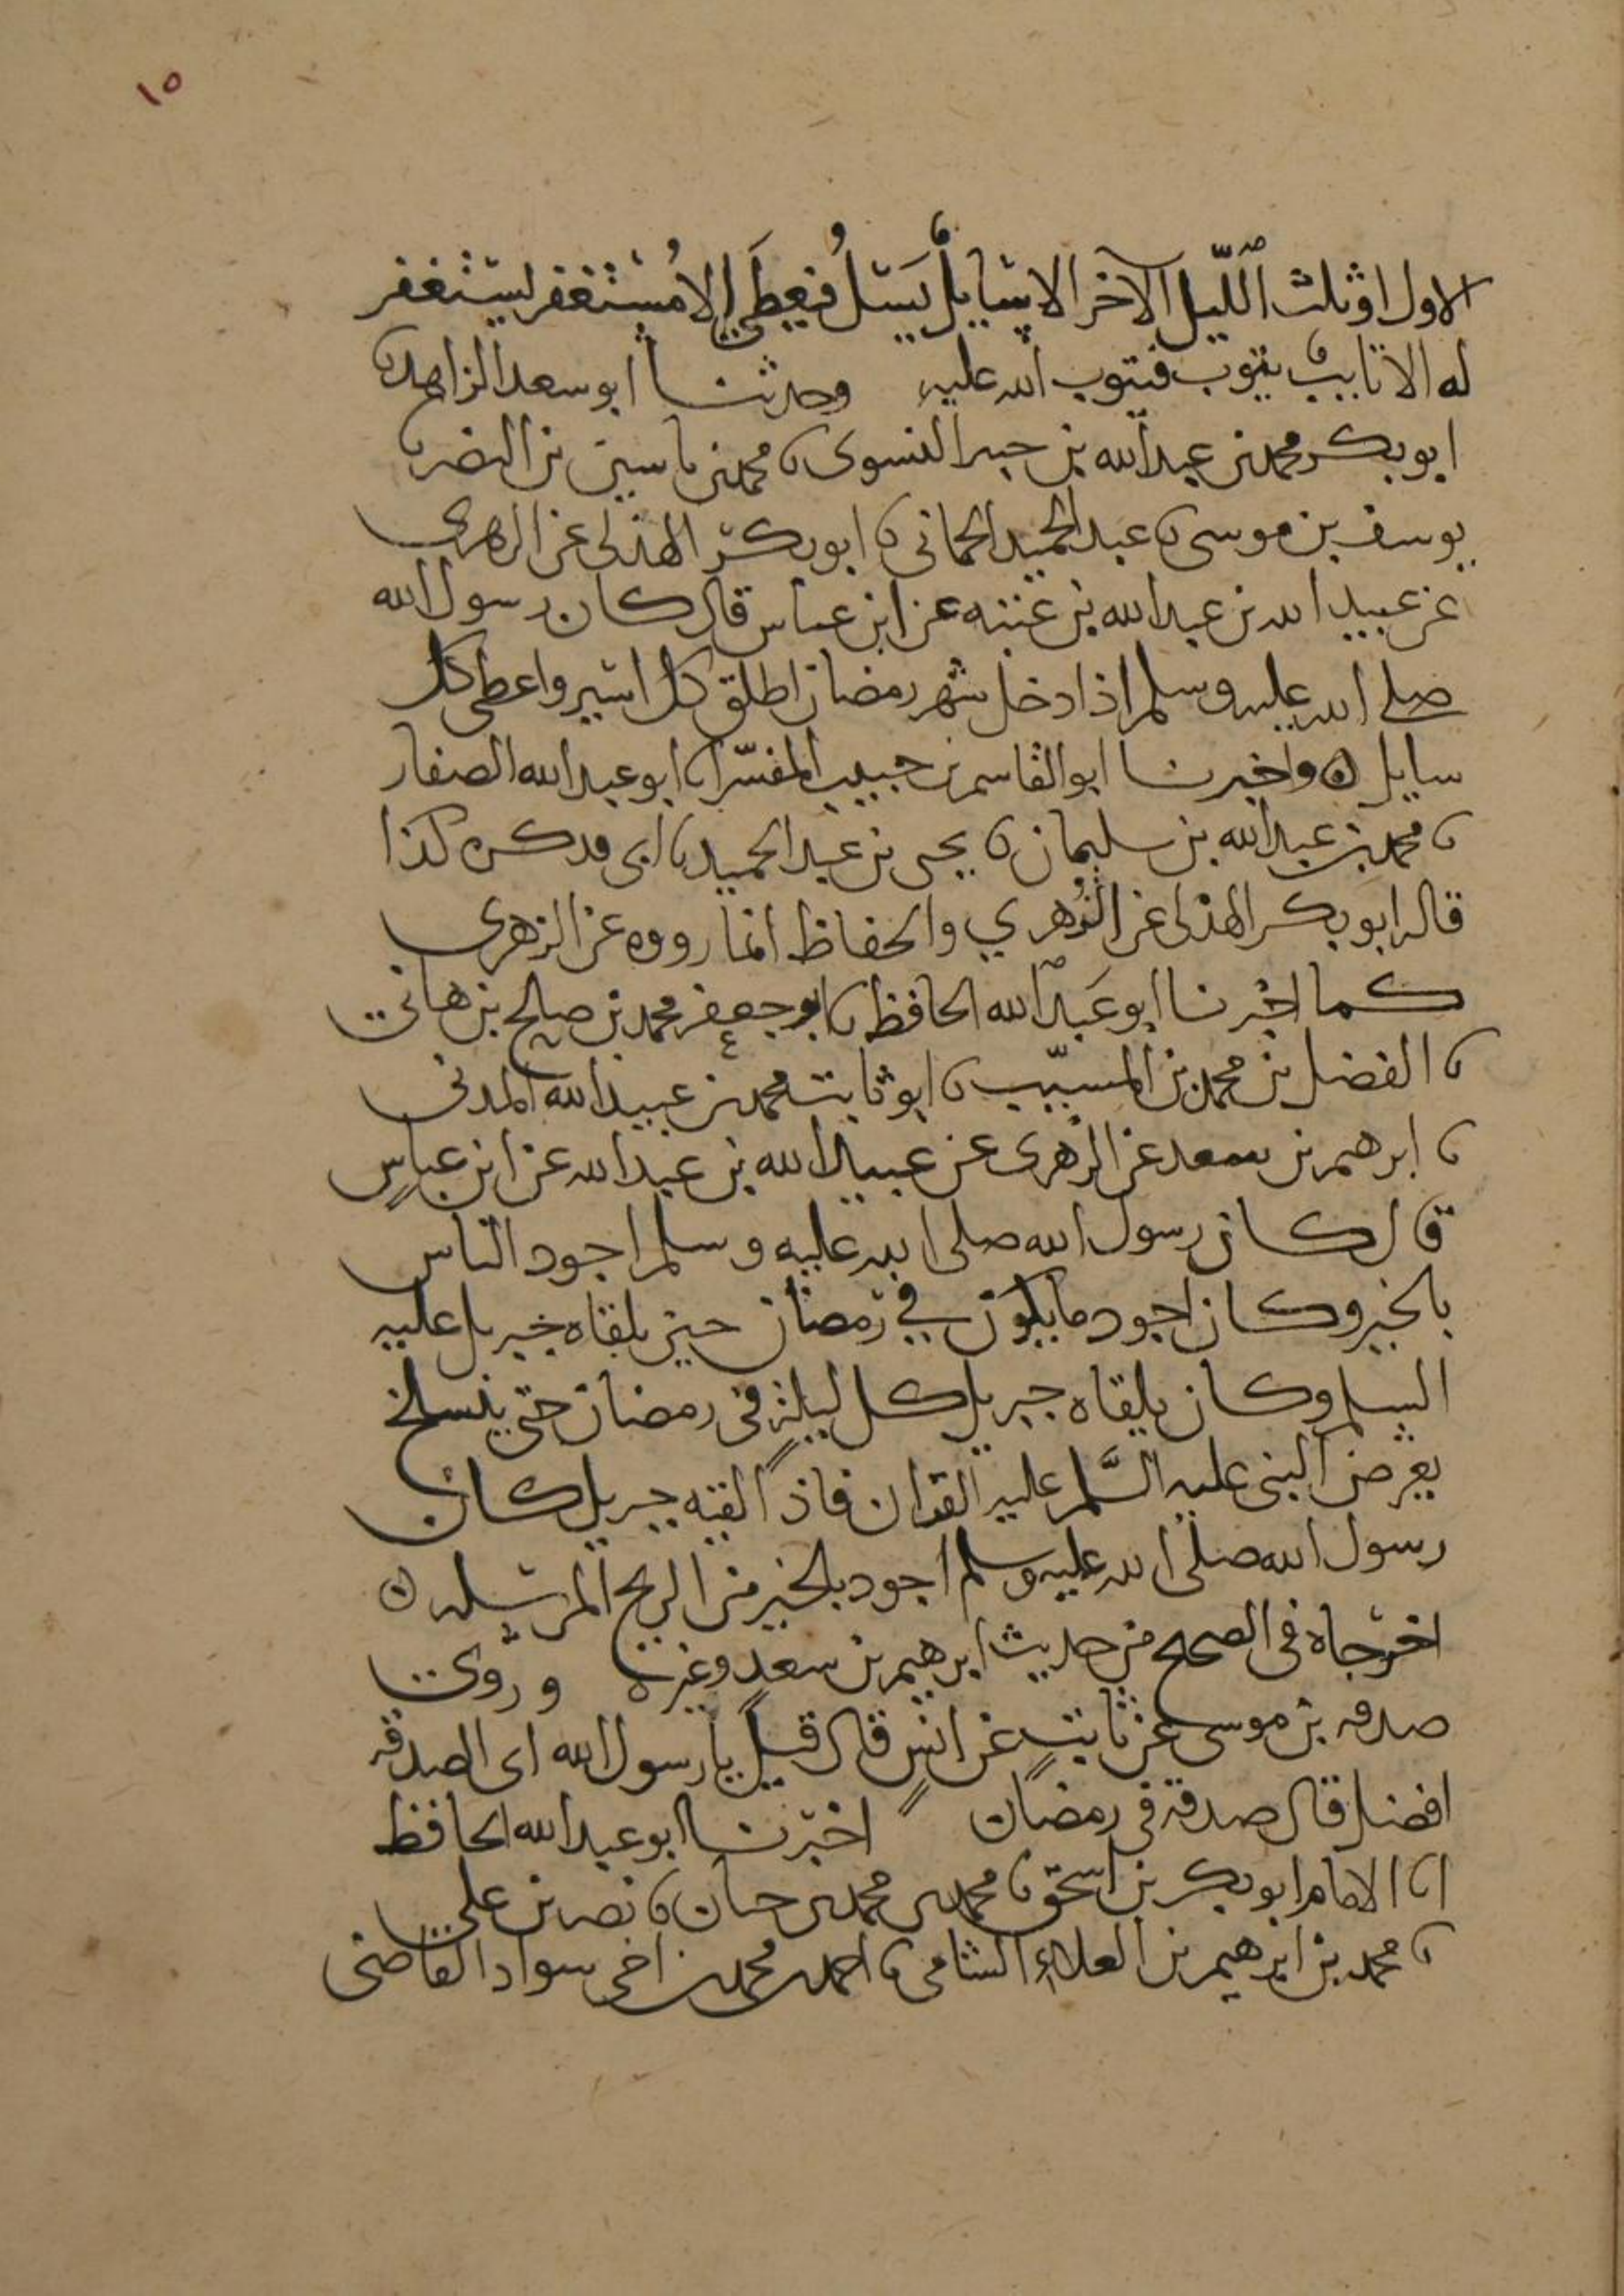 ١٥
الاول او ثلث اللّيل الآخر الا سايل يَسَلُ فيعطَى الا مُستغفر يستغفر
له الا تايب يتوب فيتوب الله عليه وحدثنا ابو سعد الزاهد نا
ابو بكر محمد بن عبد الله بن النسوى نا محمد بن ياسين بن النضر نا
يوسف بن موسى نا عبد الحميد الحمانى نا ابو بكر الهذلى عن الزهرى
عن عبيد الله بن عبد الله بن عتبه عن ابن عباس قال كان رسول الله
صلى الله عليه وسلم اذا دخل شهر رمضان اطلق كل اسير واعطى كل
سايل ٥ واخبرنا ابو القاسم بن حبيب المفسّر نا ابو عبد الله الصفار
نا محمد بن عبد الله بن سليمان نا يحيى بن عبد الحميد نا ابى فذكره كذا
قاله ابو بكر الهذلى عن الزُهري والحفاظ انما رووه عن الزهرى
كما اخبرنا ابو عَبد الله الحافظ نا ابو جعفر محمد بن صالح بن هانى
نا الفضل بن محمد بن المسيّب نا ابو ثابت محمد بن عبيد الله المدنى
نا ابرهيم بن سعد عن الزهرى عن عبيد الله بن عبد الله عن ابن عباس
قال كان رسول الله صلى الله عليه وسلم اجود الناس
بالخير وكان اجود ما يكون في رمضان حين يلقاه جبريل عليه
السلم وكان يلقاه جبريل كل ليلة فى رمضان حتى ينسلخ
يعرض النبى عليه السَّلم عليه القران فاذا لقيه جبريل كان
رسول الله صلى الله عليه وسلم اجود بالخير من الريح المرسله ٥
اخرجاه فى الصحيح من حديث ابرهيم بن سعد وغيره وروى
صدقه بن موسى عن ثابتٍ عن انسٍ قال قيل يا رسول الله اى الصدقه
افضل قال صدقه فى رمضان اخبرنا ابو عبد الله الحافظ
انا الامام ابو بكر بن اسحق نا محمد بن محمد بن حيان نا نصر بن على
نا محمد بن ابرهيم بن العلاء الشامى نا احمد بن محمد بن اخى سوار القاضى